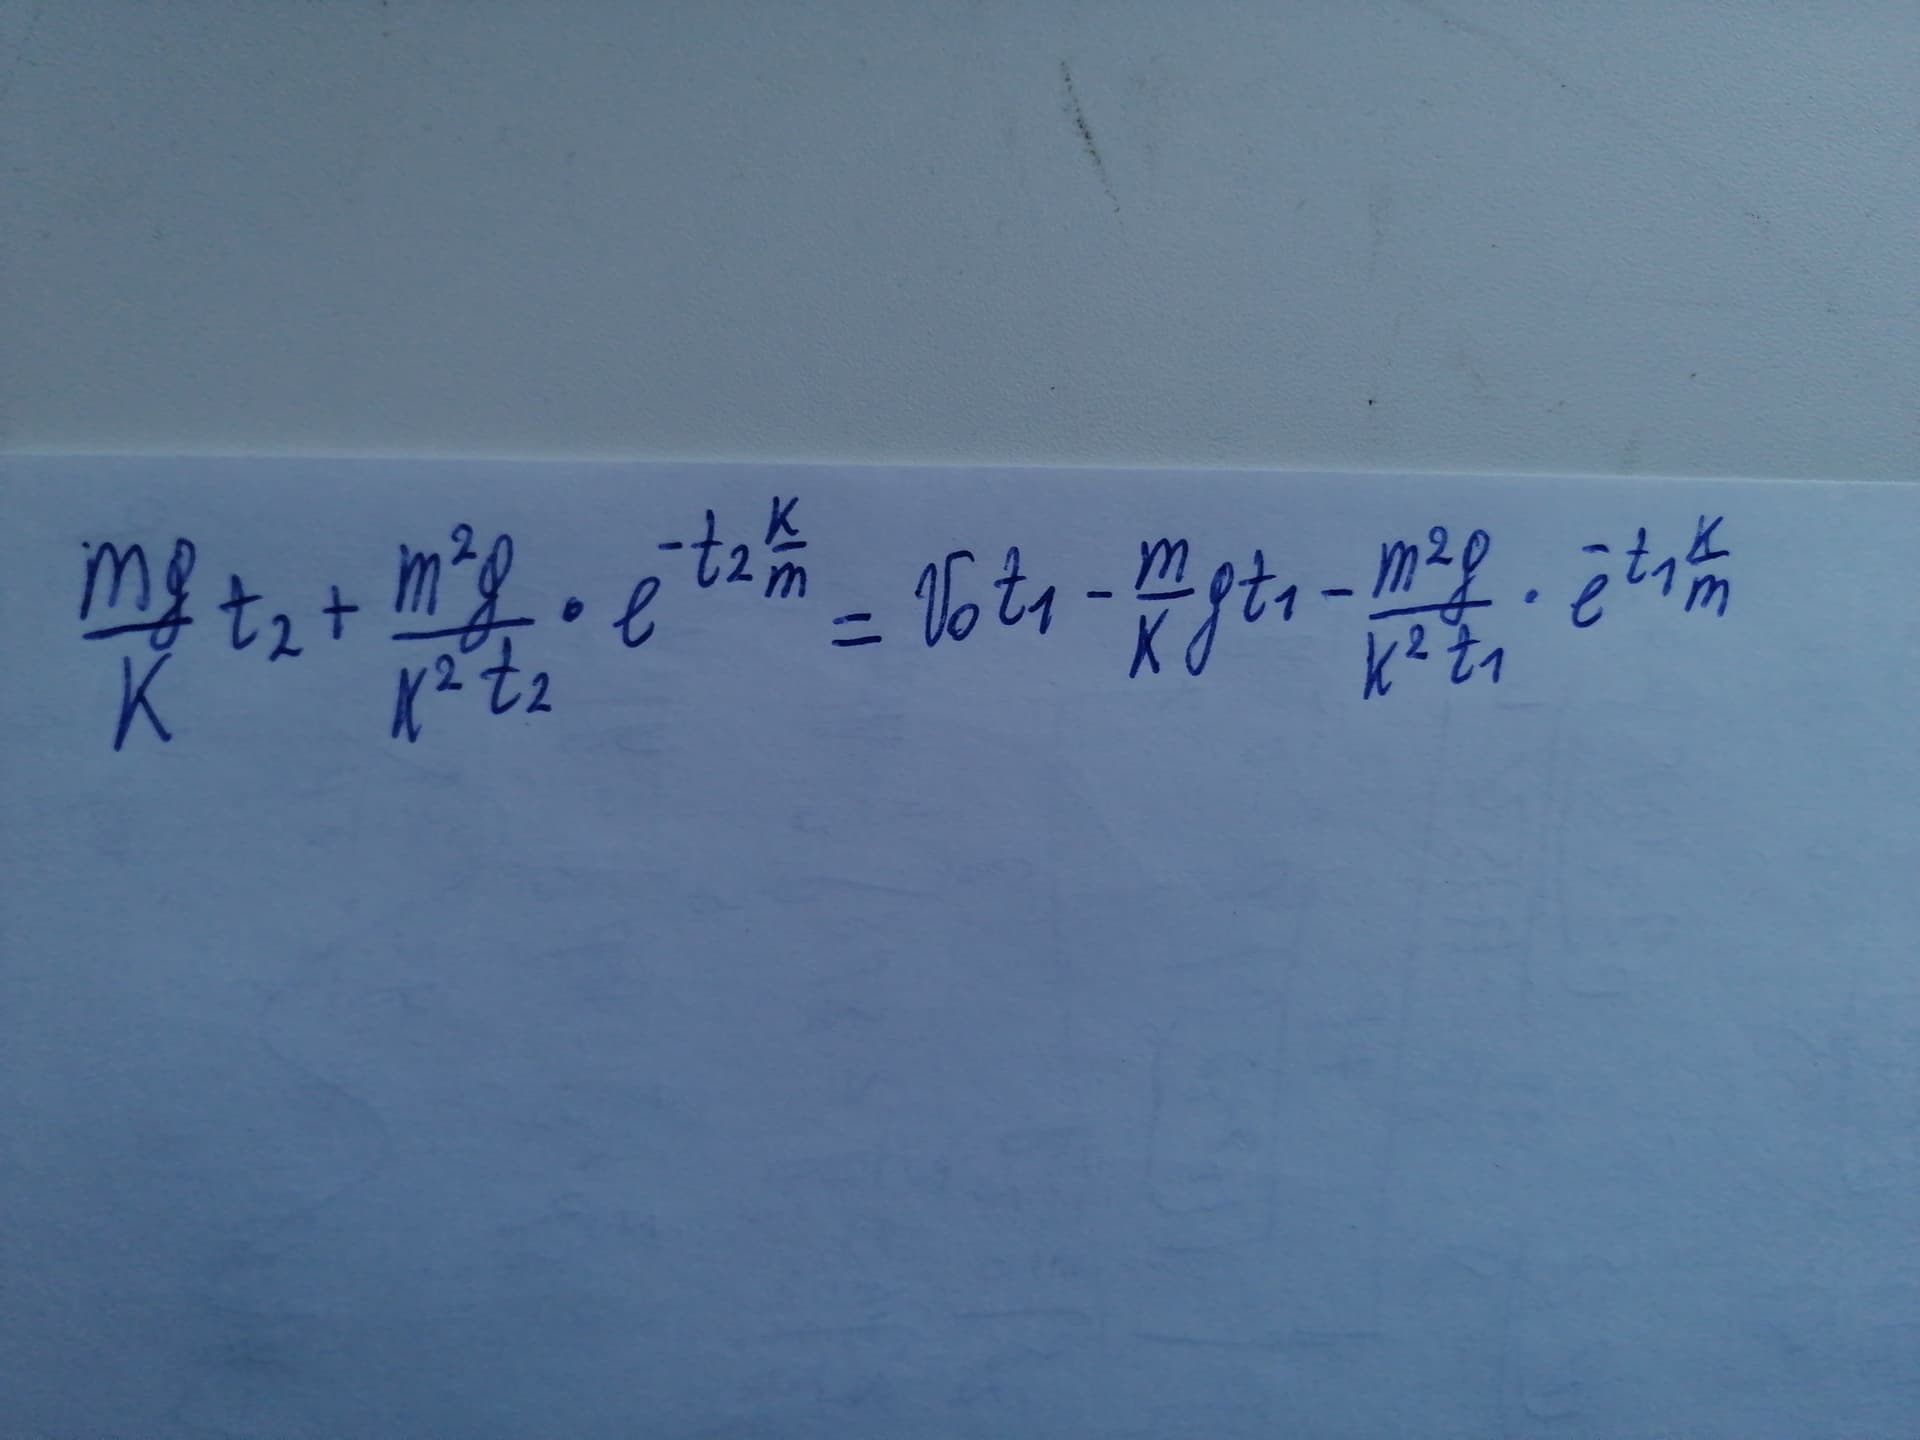 $\frac{mg}{K} t_2 + \frac{m^2 g}{K^2 t_2} \cdot e^{-t_2 \frac{K}{m}} = V_0 t_1 - \frac{m}{K} g t_1 - \frac{m^2 g}{K^2 t_1} \cdot e^{-t_1 \frac{K}{m}}$